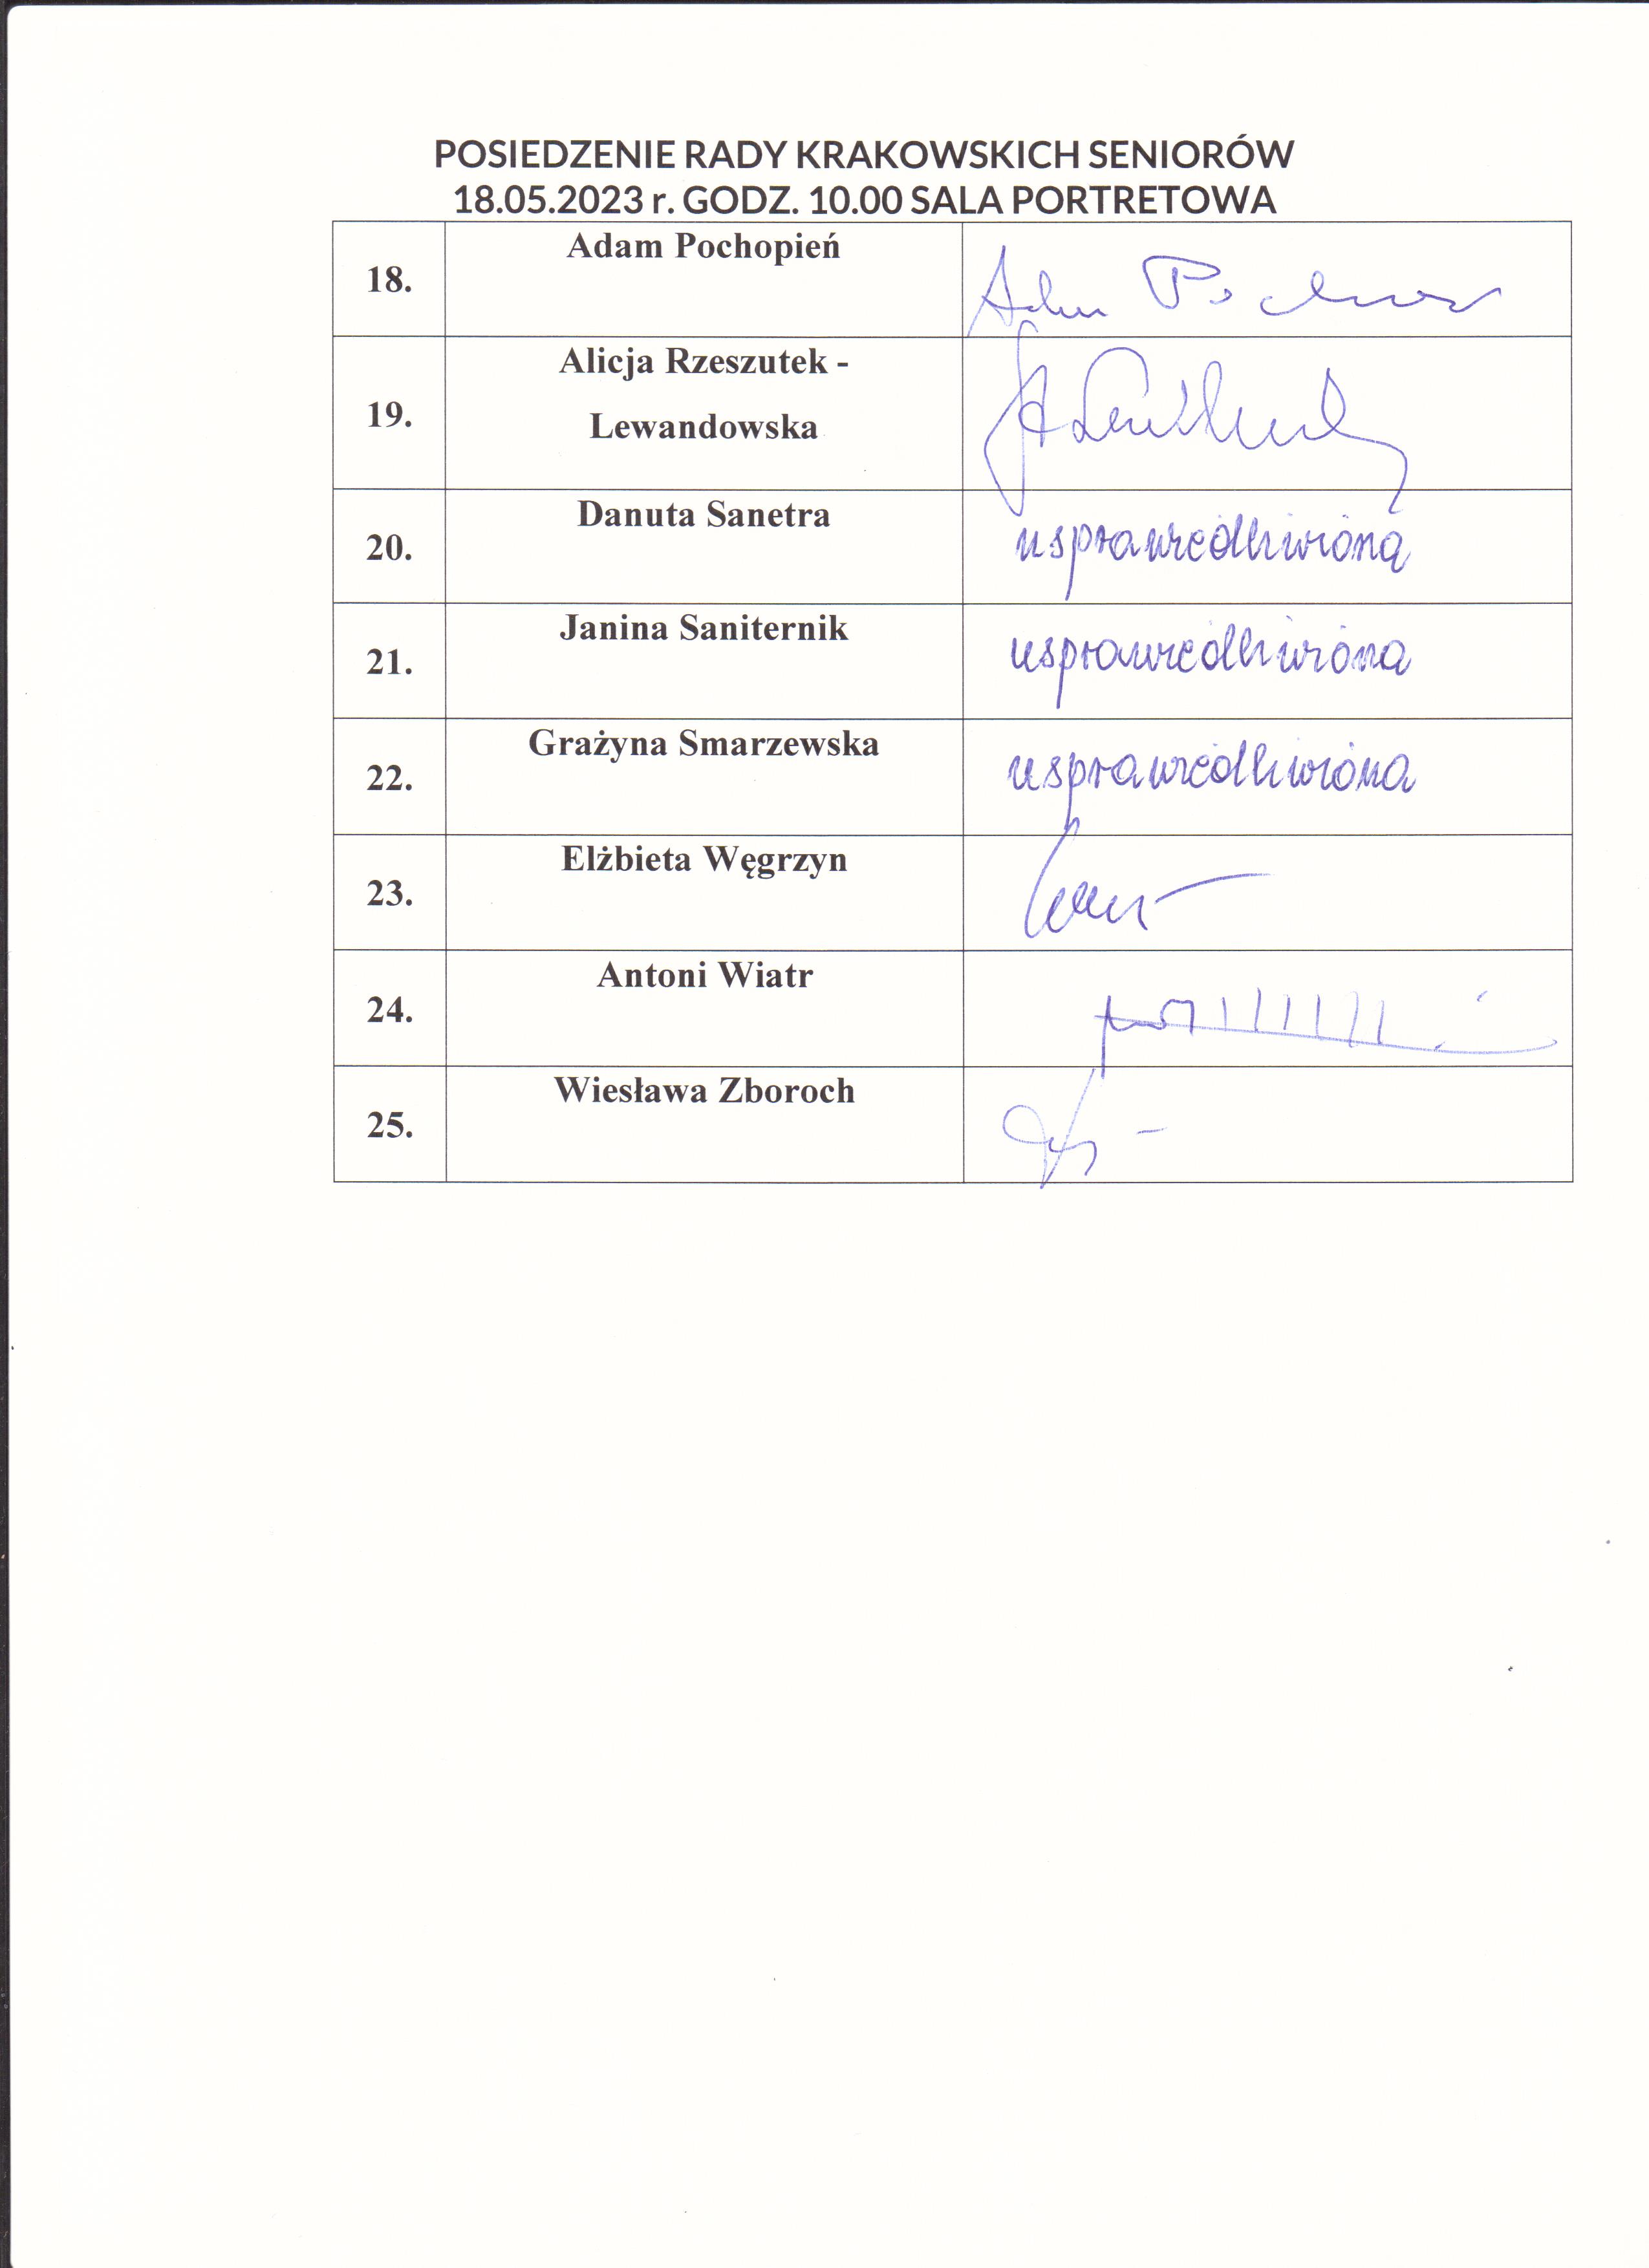 POSIEDZENIE RADY KRAKOWSKICH SENIORÓW
18.05.2023 r. GODZ. 10.00 SALA PORTRETOWA
18. Adam Pochopień Adam
19. Alicja Rzeszutek -
Lewandowska
20. Danuta Sanetra usprawiedliwiona
21. Janina Saniternik usprawiedliwiona
22. Grażyna Smarzewska usprawiedliwiona
23. Elżbieta Węgrzyn
24. Antoni Wiatr
25. Wiesława Zboroch